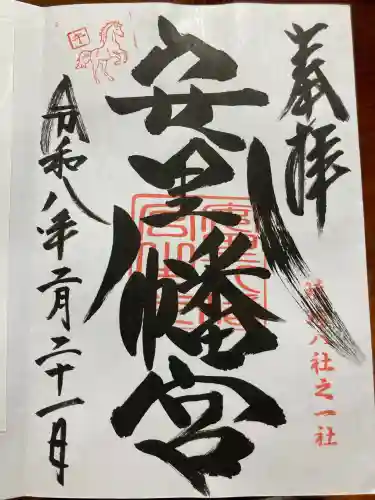 奉拝
八社之一社
安里八幡宮
令和八年二月二十一日
午